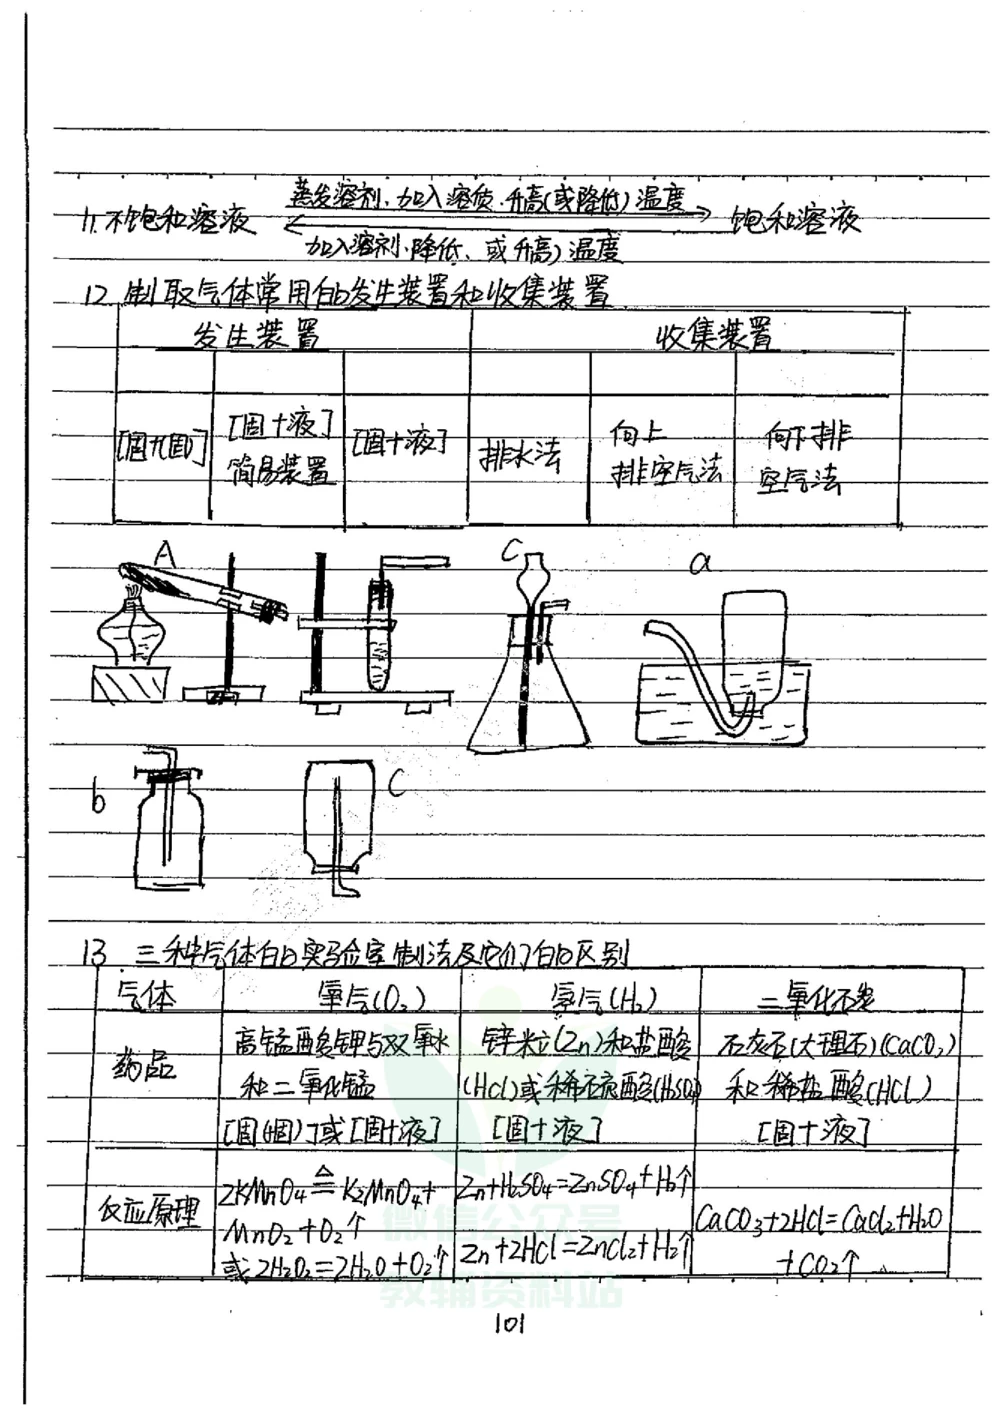 蒸发溶剂、加入溶质、升高(或降低)温度
11.不饱和溶液 饱和溶液
加入溶剂、降低、或升高)温度
12 制取气体常用的发生装置和收集装置
发生装置 收集装置
[固+(固)] [固+液] 简易装置 [固+液] 排水法 向上排空气法 向下排空气法
A C a
b C
13 三种气体的实验室制法及它们的区别
气体 氧气(O₂) 氢气(H₂) 二氧化碳
药品 高锰酸钾与双氧水 锌粒(Zn)和盐酸 石灰石(大理石)(CaCO₃)
和二氧化锰 (HCl)或稀硫酸(H₂SO₄) 和稀盐酸(HCL)
[固(+固)]或[固+液] [固+液] [固+液]
反应原理 2KMnO₄≜K₂MnO₄+ Zn+H₂SO₄=ZnSO₄+H₂↑
MnO₂+O₂↑ CaCO₃+2HCl=CaCl₂+H₂O
或2H₂O₂=2H₂O+O₂↑ Zn+2HCl=ZnCl₂+H₂↑ +CO₂↑
微信公众号
教辅资料站
101